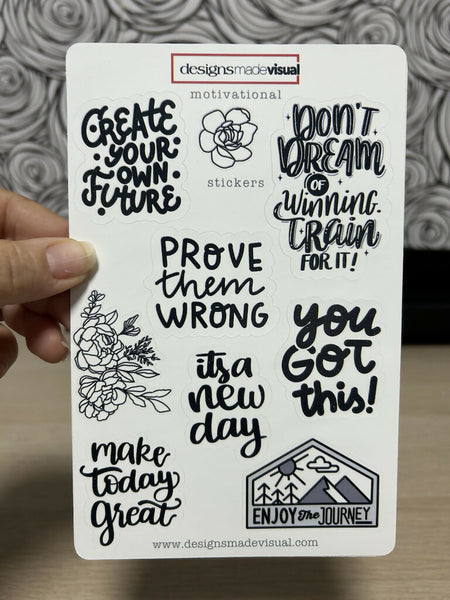 designsmadevisual
motivational
stickers
CREATE
YOUR
OWN
FUTURE
DON'T
DREAM
OF
WINNING.
TRAIN
FOR IT!
PROVE
them
WRONG
you
GOT
this!
its a
new
day
make
today
great
ENJOY The JOURNEY
www.designsmadevisual.com